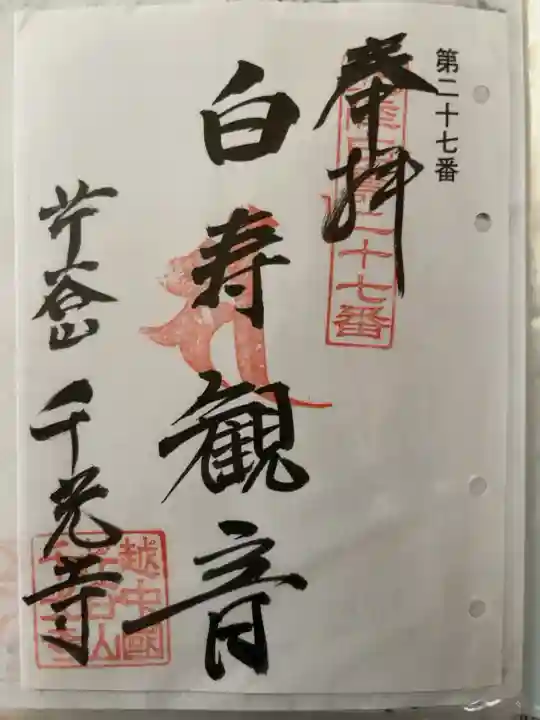 第二十七番
奉拝
二十七番
白寿観音
芹谷山 千光寺
越中國